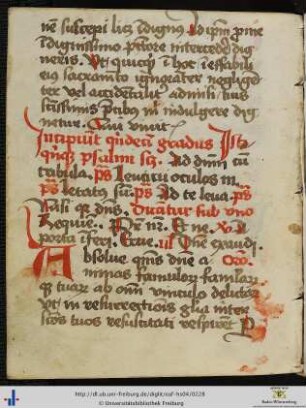 ne suscepi licz indignus Et ipsum pro me
indignissimo pctore intercedere dig
neris. Vt quicquid in hoc ineffabili
eius sacramento ignoranter neglig
ter vel accidentaliter admisi tuis
sctissimis pcibus m indulgere dig
netur. Qui viuit
Incipiunt quindecim gradus Ista
quinque psalmi sc. Ad dnm cu
tribula. ps Leuaui oculos m.
ps letatus sum. ps Ad te leua. ps
Nisi q dns. Dicatur sub vno
Requie. Pr nr. Et ne. V A
porta inferi. Erue. Dne exaudi.
Absolue qs dne a Oro.
nimas famulorum famularum
q tuarum ab omi vinculo delictorum
vt in resurrectionis gloria inter
sctos tuos resuscitati respirent P
http://dl.ub.uni-freiburg.de/diglit/caf-hs04/0228
© Universitätsbibliothek Freiburg
Baden-Württemberg